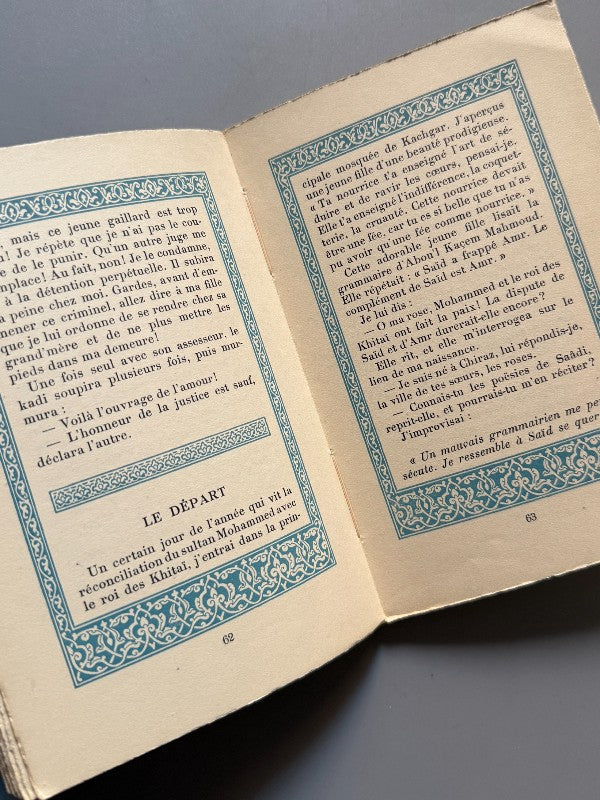 mais ce jeune gaillard est trop
! Je répète que je n'ai pas le cou-
e de le punir. Qu'un autre juge me
mplace! Au fait, non! Je le condamne,
à la détention perpétuelle. Il subira
a peine chez moi. Gardes, avant d'em-
mener ce criminel, allez dire à ma fille
que je lui ordonne de se rendre chez sa
grand'mère et de ne plus mettre les
pieds dans ma demeure!
Une fois seul avec son assesseur, le
kadi soupira plusieurs fois, puis mur-
mura :
— Voilà l'ouvrage de l'amour!
— L'honneur de la justice est sauf,
déclara l'autre.
LE DÉPART
Un certain jour de l'année qui vit la
réconciliation du sultan Mohammed avec
le roi des Khitaï, j'entrai dans la prin-
62
cipale mosquée de Kachgar. J'aperçus
une jeune fille d'une beauté prodigieuse.
« Ta nourrice t'a enseigné l'art de sé-
duire et de ravir les cœurs, pensai-je.
Elle t'a enseigné l'indifférence, la coquet-
terie, la cruauté. Cette nourrice devait
être une fée, car tu es si belle que tu n'as
pu avoir qu'une fée comme nourrice. »
Cette adorable jeune fille lisait la
grammaire d'Abou'l Kaçem Mahmoud.
Elle répétait : « Saïd a frappé Amr. Le
complément de Saïd est Amr. »
Je lui dis :
— O ma rose, Mohammed et le roi des
Khitaï ont fait la paix! La dispute de
Saïd et d'Amr durerait-elle encore?
Elle rit, et elle m'interrogea sur le
lieu de ma naissance.
— Je suis né à Chiraz, lui répondis-je,
la ville de tes sœurs, les roses.
— Connais-tu les poésies de Saâdi,
reprit-elle, et pourrais-tu m'en réciter?
J'improvisai :
« Un mauvais grammairien me per
sécute. Je ressemble à Saïd se quer
63